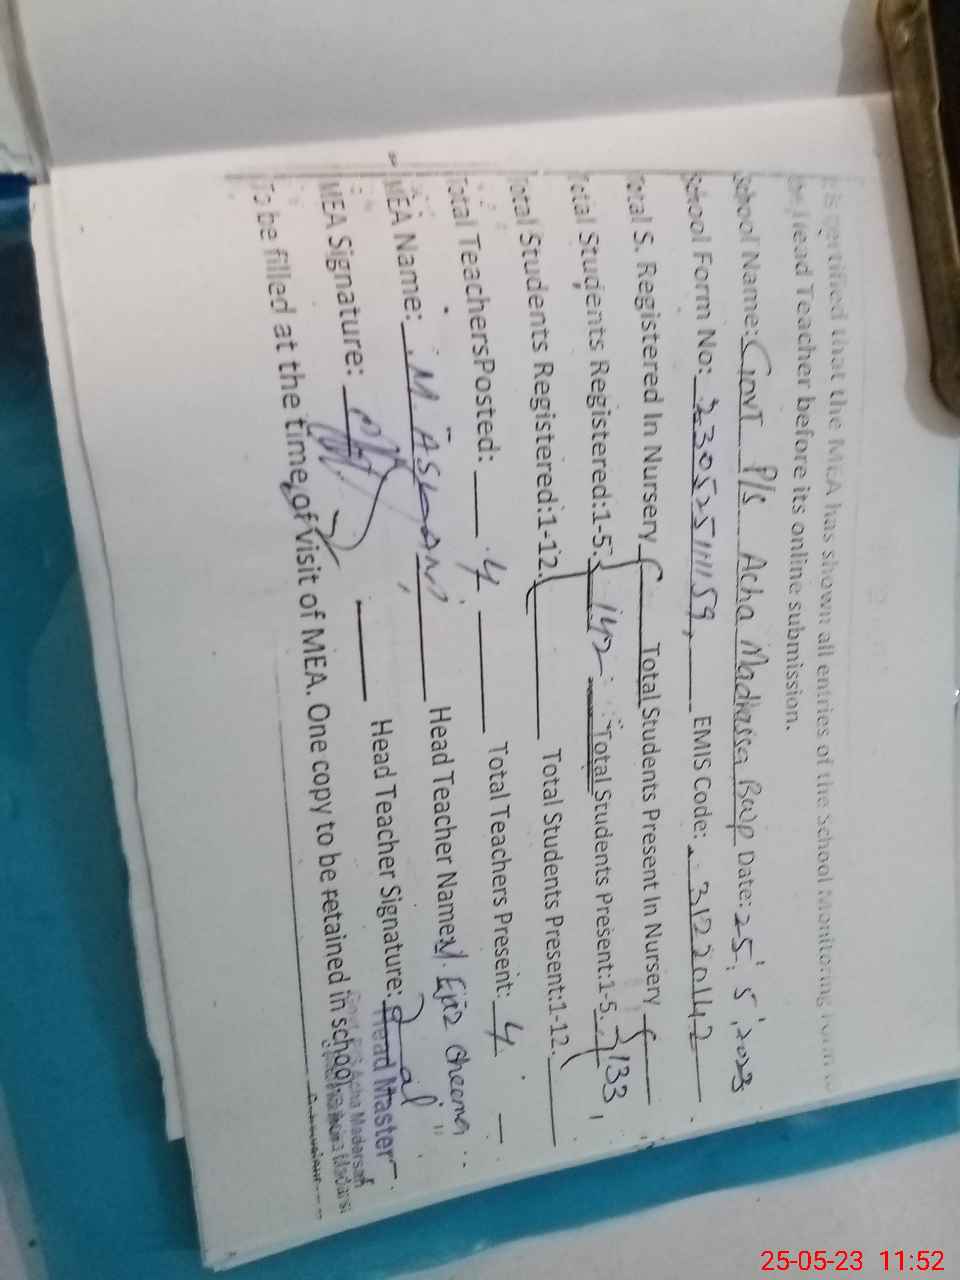 It is certified that the MEA has shown all entries of the School Monitoring Form to
the Head Teacher before its online submission.
School Name: Govt P/S Acha Madrassa Bwp Date: 25.5.2023
School Form No: 23052511159, EMIS Code: 31220142
Total S. Registered In Nursery { Total Students Present In Nursery {
Total Students Registered:1-5. } 142 Total Students Present:1-5. } 133,
Total Students Registered:1-12. ( Total Students Present:1-12. (
Total TeachersPosted: 4 Total Teachers Present: 4
MEA Name: M. ASLAM Head Teacher Name: M. Ejaz Cheema
MEA Signature: Head Teacher Signature:
Head Master
To be filled at the time of visit of MEA. One copy to be retained in school.
Acha Madarsah
25-05-23 11:52